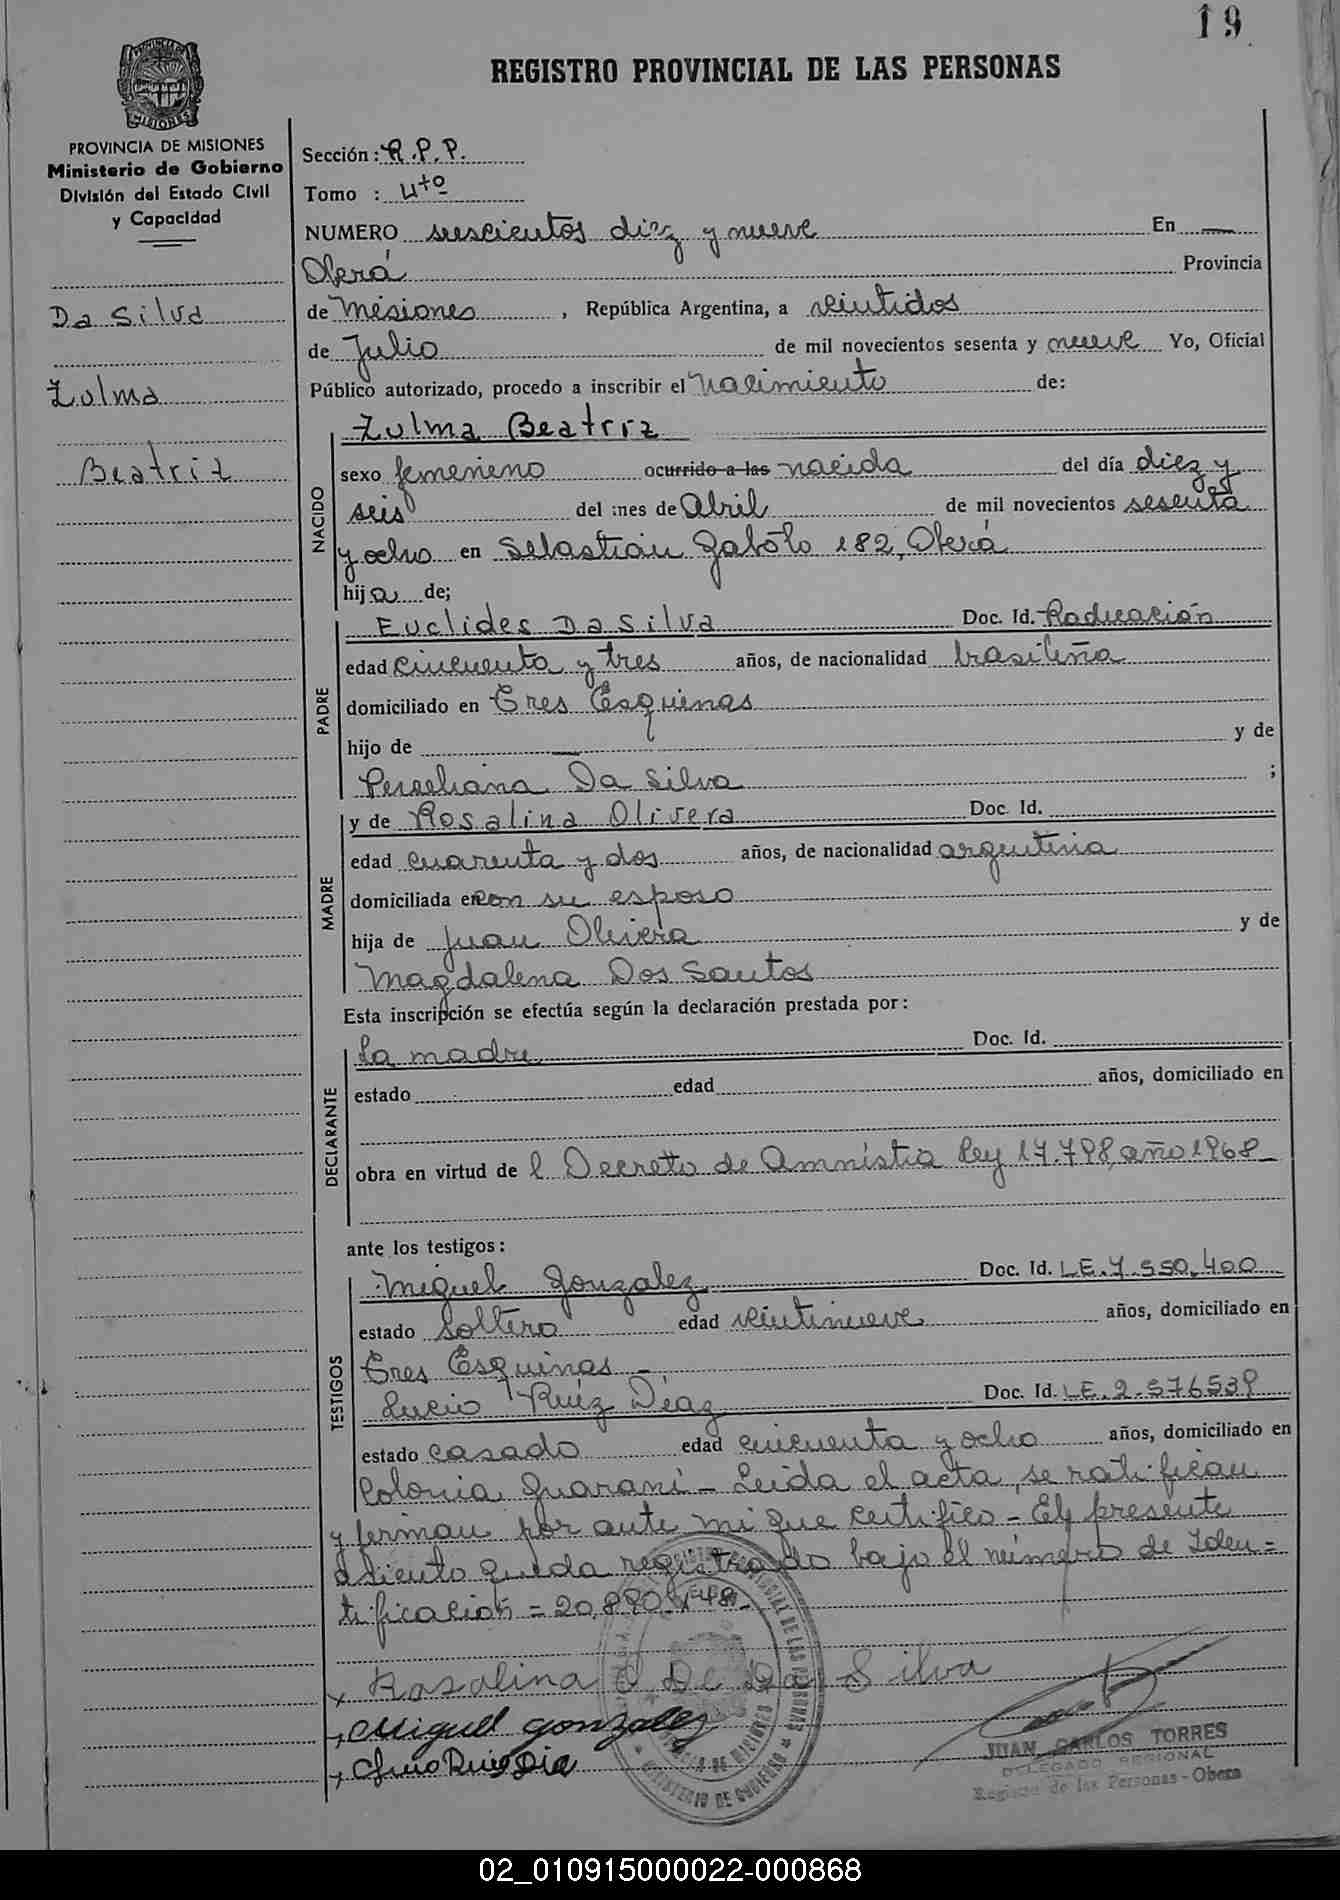 19
REGISTRO PROVINCIAL DE LAS PERSONAS
MISIONES
PROVINCIA DE MISIONES
Ministerio de Gobierno
División del Estado Civil
y Capacidad
Da Silva
Zulma
Beatriz
Sección: R.P.P.
Tomo : 4to
NUMERO seiscientos diez y nueve En —
Oberá Provincia
de Misiones, República Argentina, a veintidos
de Julio de mil novecientos sesenta y nueve Yo, Oficial
Público autorizado, procedo a inscribir el nacimiento de:
NACIDO
Zulma Beatriz
sexo femenino ocurrido a las nacida del día diez y
seis del mes de Abril de mil novecientos sesenta
y ocho en Sebastián Gabôto 182, Oberá
hija de;
PADRE
Euclides Da Silva Doc. Id. Radicación
edad cincuenta y tres años, de nacionalidad brasileña
domiciliado en Tres Esquinas
hijo de — y de
Da Silva ;
MADRE
y de Rosalina Olivera Doc. Id.
edad cuarenta y dos años, de nacionalidad argentina
domiciliada en con su esposo
hija de Juan Olivera y de
Magdalena Dos Santos
Esta inscripción se efectúa según la declaración prestada por:
DECLARANTE
La madre Doc. Id.
estado edad años, domiciliado en
obra en virtud de l Decreto de Amnistia Ley 17.798, año 1968 —
ante los testigos:
TESTIGOS
Miguel Gonzalez Doc. Id. L.E. 7.550.400
estado Soltero edad veintinueve años, domiciliado en
Tres Esquinas —
Lucio Ruíz Díaz Doc. Id. L.E. 2.576539
estado casado edad cincuenta y ocho años, domiciliado en
Colonia Guaraní — Leida el acta, se ratifican
y firman por ante mi que certifico — El presente
asiento queda registrado bajo el número de Iden=
tificación = 20.890.148 —
x Rosalina O De Da Silva
x Miguel Gonzalez
x Ruiz Dia
JUAN CARLOS TORRES
DELEGADO REGIONAL
Registro de las Personas - Obera
MINISTERIO DE GOBIERNO
02_010915000022-000868